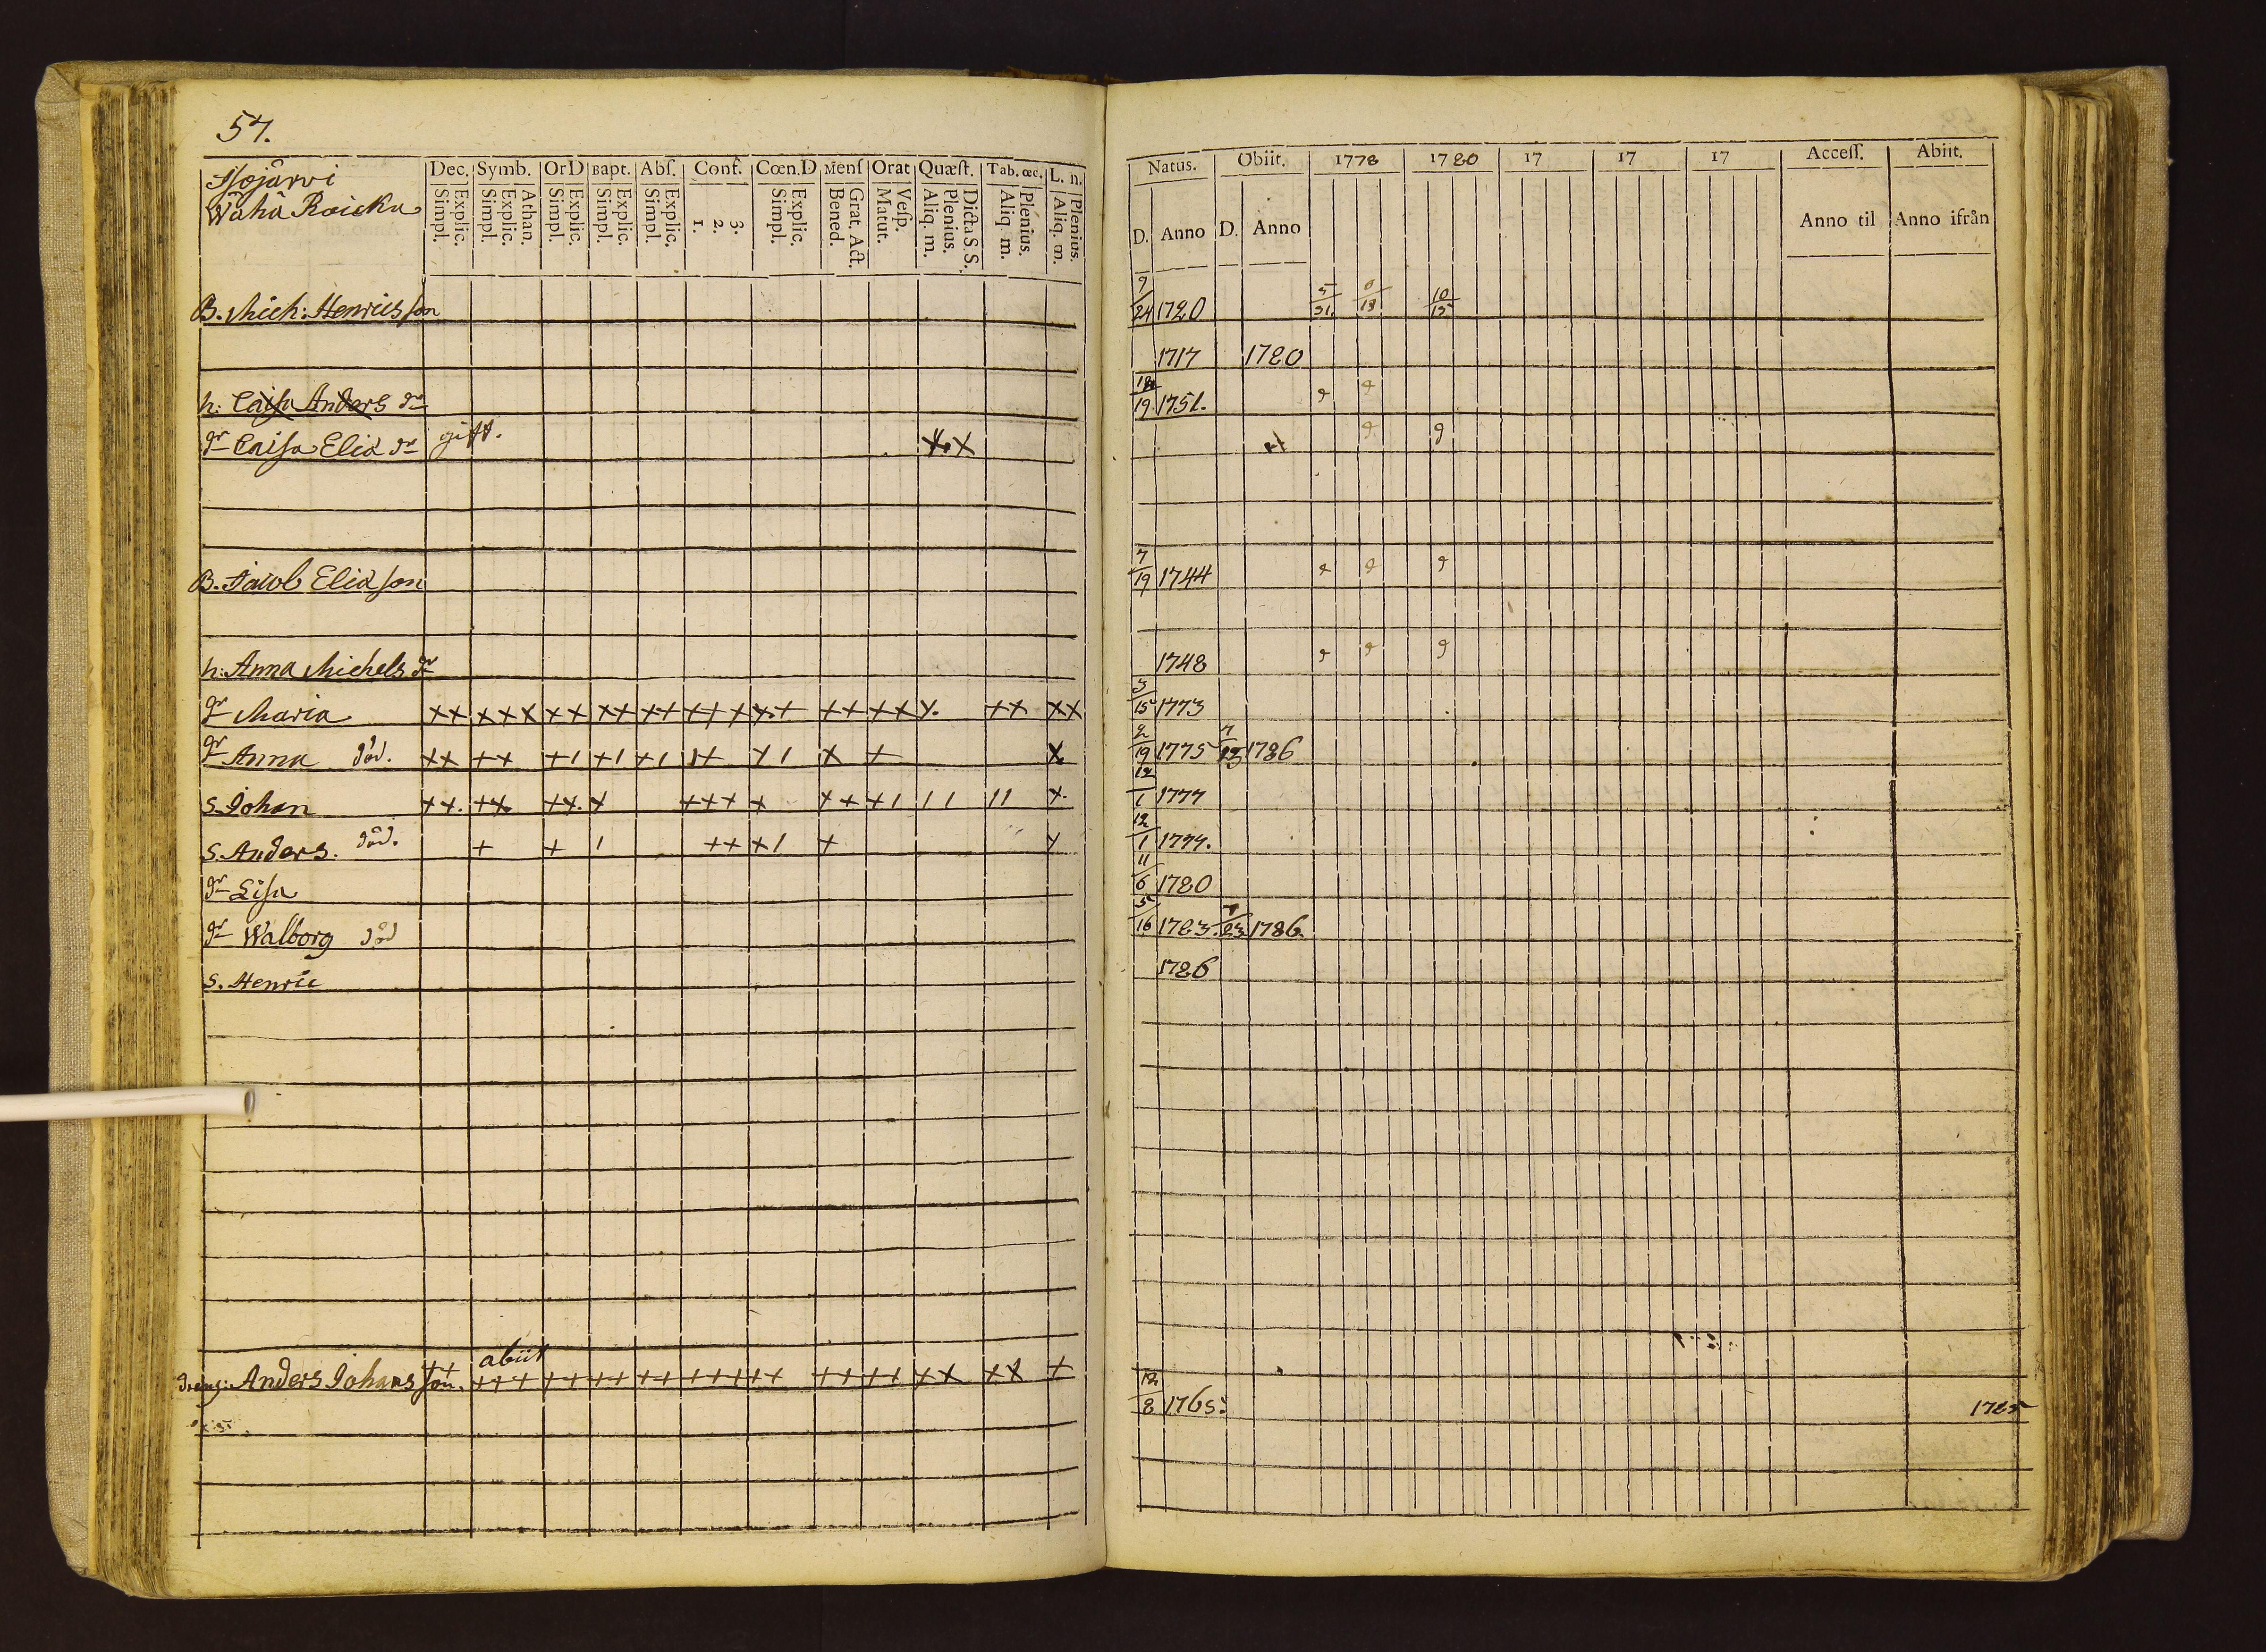 57.
Isojärwi
Wähä Roicku
Dec. Symb. OrD Bapt. Abſ. Conf. Cœn.D Menſ Orat Quæſt. Tab. œc. L. n.
Explic. Simpl. Athan. Explic. Simpl. Explic. Simpl. Explic. Simpl. Explic. Simpl. 3. 2. 1. Explic. Simpl. Grat. Act. Bened. Veſp. Matut. Dicta S. S. Plenius. Aliq. m. Plenius. Aliq. m. Plenius. Aliq. m.
B. Mich: Henricsson
h: Caisa Anders dr
dr Caisa Elia dr gift. x x
B. Jacob Eliasson
h: Anna Michels dr
dr Maria xx xxx xx xx xx xxx x+ xx xx x. xx xx
dr Anna död. xx ++ +1 +1 +1 1+ x1 x + x
S. Johan ++. ++ ++. + +++ + ++ +1 11 11 x.
S. Anders. död. + + 1 ++ +1 + y
dr Lisa
dr Walborg död
S. Henric
abiit
dreng: Anders Johansson. ++ +++ ++ ++ ++ +++ ++ ++ ++ xx xx +
Natus. Obiit. 1778 1780 17 17 17 Acceſſ. Abiit.
D. Anno D. Anno Anno til Anno ifrån
9/24 1720 5/31 10/15
1717 1780
19 1751.
7/19 1744
1748
3/15 1773
2/19 1775 7/13 1786
12/1 1777
12/1 1777.
11/6 1780
5/16 1783. 7/23 1786.
1786
12/8 1765: 1785